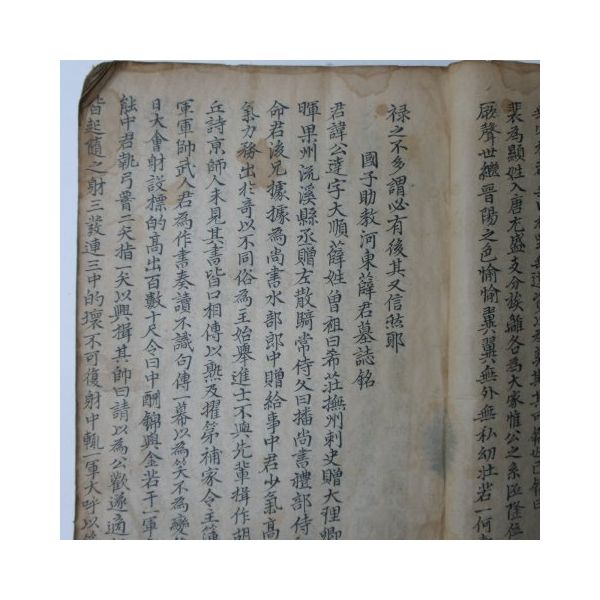 裴為顯姓入唐尤盛支分族離各為大家惟公之系德隆位
厥聲世繼晋陽之色愉愉翼翼無外無私幼壮若一何
禄之不多謂必有後其又信然耶
國子助教河東薛君墓誌銘
君諱公達字大順薛姓曾祖曰希莊撫州刺史贈大理卿
暉果州流溪縣丞贈左散騎常侍父曰播尚書禮部侍
命君後兄據據為尚書水部郎中贈給事中君少氣高
氣力務出於奇以不同俗為主始舉進士不與先輩揖作胡
丘詩京師人未見其書皆口相傳以熟及擢第補家令主簿
軍軍帥武人君為作書奏讀不識句傳一幕以為笑不為變
日大會射設標的高出百數十尺令曰中酬錦與金若干一軍
能中君執弓腰二矢指一矢以興揖其帥曰請以為公歡遂適
皆起隨之射三發連三中的壞不可復射中輒一軍大呼以